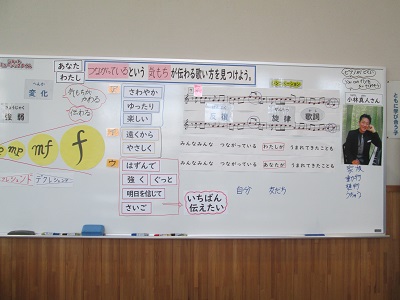 あなた
わたし
つながっているという 気もちが伝わる歌い方を見つけよう。
へんか
変化
気もちが
かわる
伝わる
強弱
mp
mf
f
クレシェンド デクレシェンド
ア
さわやか
ゆったり
楽しい
イ
遠くから
やさしく
ウ
はずんで
強く
ぐっと
明日を信じて
さいご
いちばん
伝えたい
反復
旋律
歌詞
みんなみんな つながっている わたしが うまれてきたことも
みんなみんな つながっている あなたが うまれてきたことも
自分
友だち
小林真人さん
家族
動物
植物